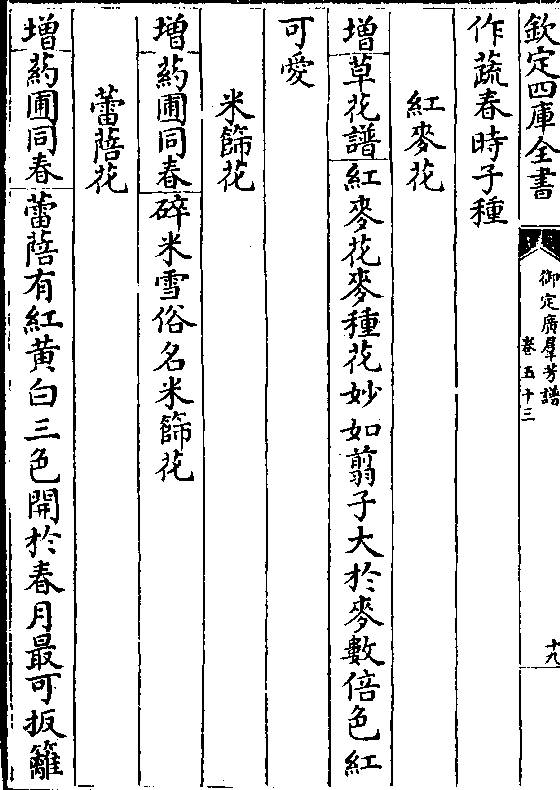 欽定四庫全書
御定廣羣芳譜
卷五十三
十九
作蔬春時子種
紅麥花
增草花譜紅麥花麥種花妙如翦子大於麥數倍色紅
可愛
米篩花
增葯圃同春碎米雪俗名米篩花
蕾蓓花
增葯圃同春蕾蓓有紅黄白三色開於春月最可扳籬